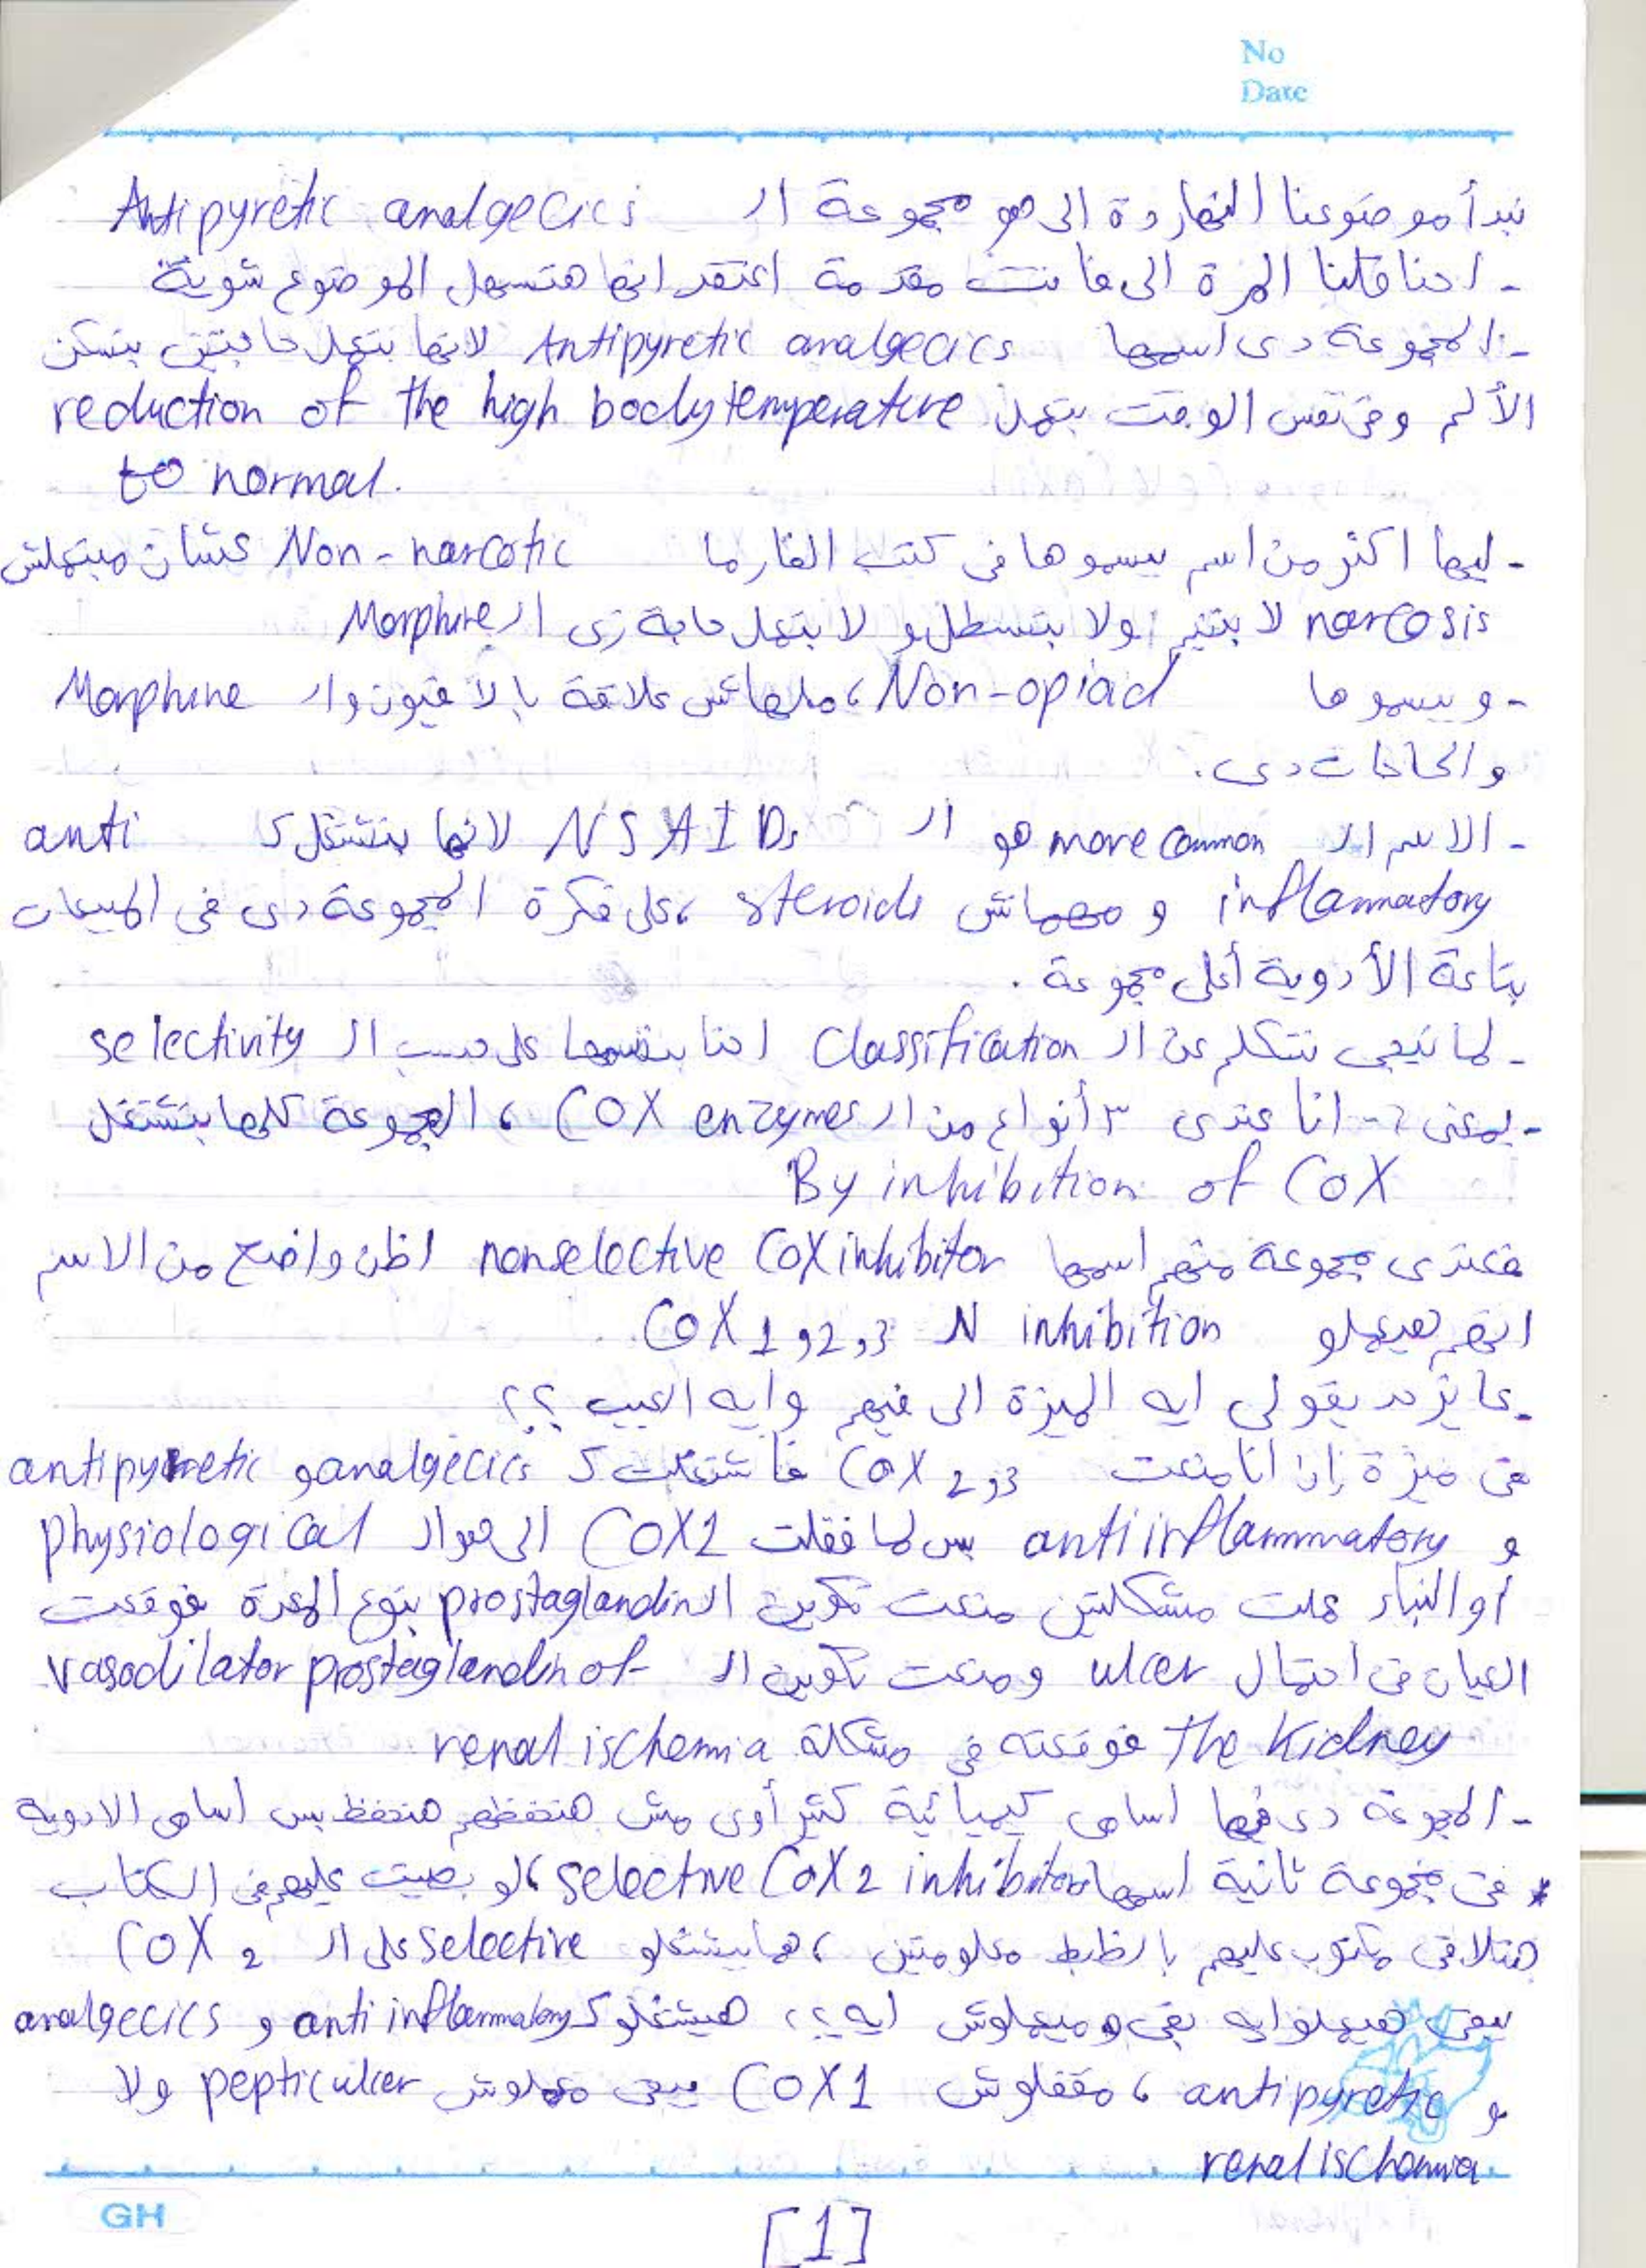 No
Date
نبدأ موضوعنا النهاردة الى هو مجموعة الـ Antipyretic analgecics
- احنا قلنا المرة الى فاتت مقدمة اعتقد انها هتسهل الموضوع شوية
- المجموعة دى اسمها Antipyretic analgecics لانها بتعمل حاجتين بتسكن
الألم وفى نفس الوقت بتعمل reduction of the high body temperature
to normal.
- ليها اكتر من اسم بيسموها فى كتب الفارما Non-narcotic عشان مبتعملش
narcosis لا بتنيم ولا بتسطل ولا بتعمل حاجة زى الـ Morphine
- وبيسموها Non-opiad، ملهاش علاقة بالأفيون والـ Morphine
والحاجات دى.
- الاسم الـ more common هو الـ NSAIDs لانها بتشتغل كـ anti
inflammatory و مهماش steroids، على فكرة المجموعة دى فى المبيعات
بتاعة الأدوية أعلى مجموعة.
- لما نيجى نتكلم عن الـ Classification احنا بنقسمها على حسب الـ selectivity
- بمعنى ؟- انا عندى ٣ أنواع من الـ COX enzymes، المجموعة كلها بتشتغل
By inhibition of COX
فعندى مجموعة منهم اسمها nonselective COX inhibitor اظن واضح من الاسم
انهم هيعملو inhibition لـ COX 1و2و3
- عايز حد يقولى ايه الميزة الى فيهم وايه العيب ؟؟
فى ميزة إن انا منعت COX 2و3 فاشتغلت كـ antipyretic و analgecics
و antiinflammatory بس لما قفلت COX1 الى هوا الـ physiological
أو البناء عملت مشكلتين منعت تكوين الـ prostaglandin بتوع المعدة فوقعت
العيان فى احتمال ulcer ومنعت تكوين الـ vasodilator prostaglandin of
the Kidney فوقعته فى مشكلة renal ischemia
- المجموعة دى فيها اسامى كيميائية كتير أوى مش هنحفظهم هنحفظ بس اسامى الادوية
* فى مجموعة تانية اسمها selective COX2 inhibitors، لو بصيت عليهم فى الكتاب
هتلاقى مكتوب عليهم بالظبط معلومتين، هما بيشتغلو selective على الـ COX 2
يبقى هيعملو ايه بقى وميعملوش ايه ؟؟ هيشتغلو كـ anti inflammatory و analgecics
و antipyretic، مقفلوش COX1 يبقى معملوش peptic ulcer ولا
renal ischemia
GH
[1]